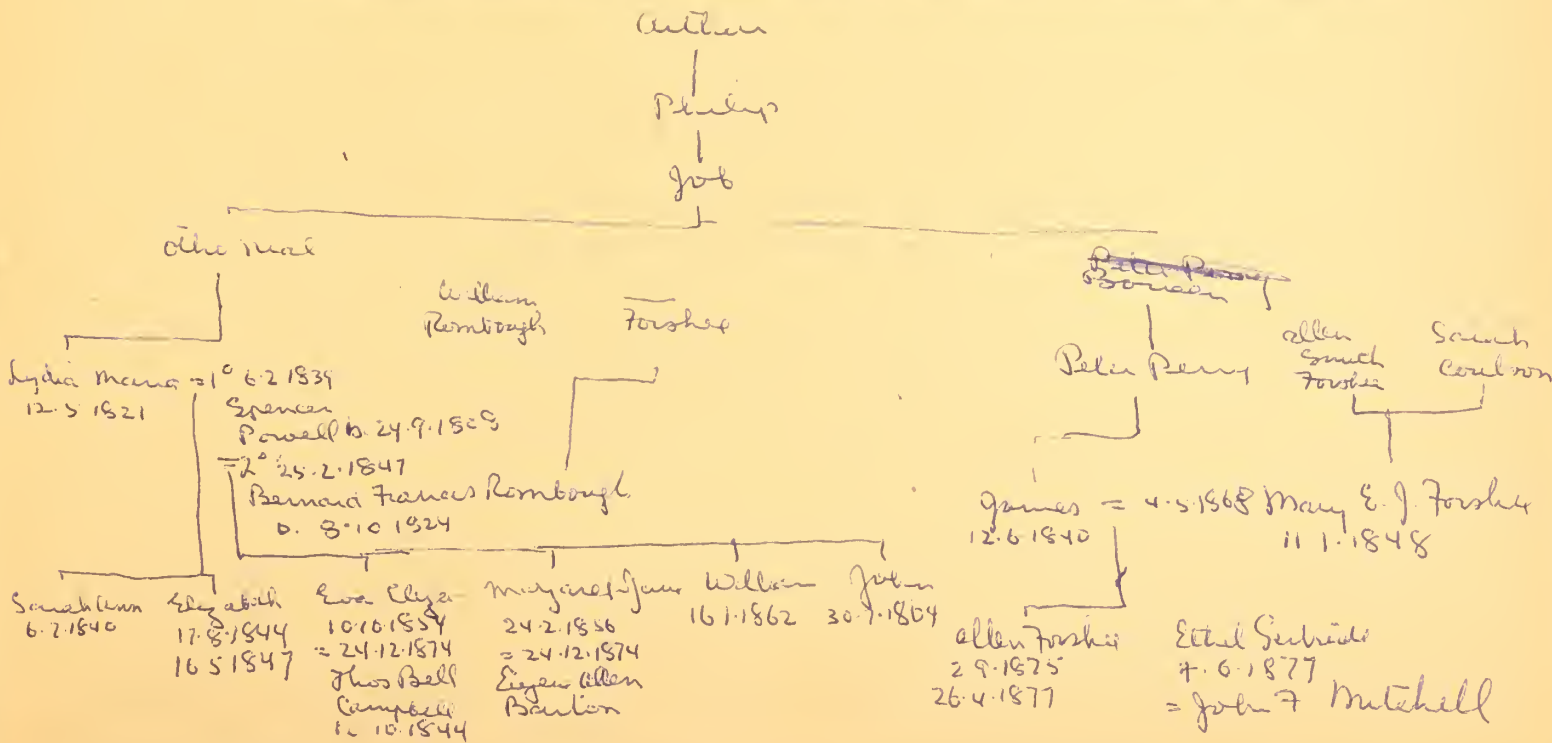 Philip
Job
William
Rombough
Forshee
Peter Perry
Borden
Allen
Smith
Forshee
Sarah
Peter Perry
Lydia Maria = 1° 6.2 1839
12.5 1821
Spencer
Powell b. 24.9.18
= 2° 25.2.1847
Francis Rombough
b. 8.10 1824
James = 4.5.1868 Mary E. J. Forshee
12.6 1840
11 1.1848
Sarah Ann
6.7.1840
Elizabeth
17.8.1844
16 5 1847
Eva Eliza
10.10.1854
= 24.12.1874
Thos Bell
Campbell
10.1844
Margaret Jane
24.2.1856
= 24.12.1874
Allen
William
16 1.1862
John
30.7.1864
Allen Forshee
2 9.1875
26.4.1877
Ethel Gertrude
7.6.1877
= John F Mitchell